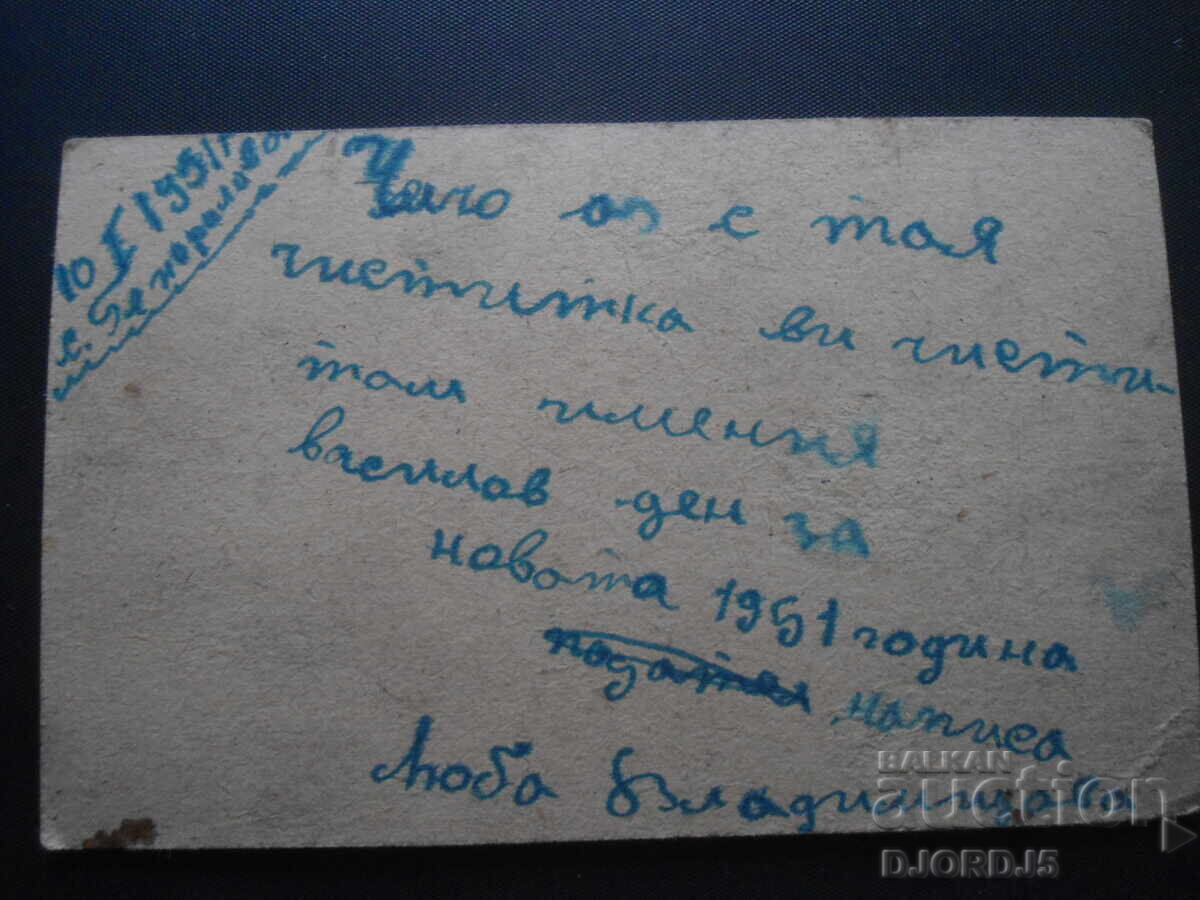 10 I 1951 г
с.
Чичо аз с тая
чиститка ви чисти-
там имения
василов ден за
новата 1951 година
написа
Люба Владимирова
BALKAN
auction
DJORDJ5